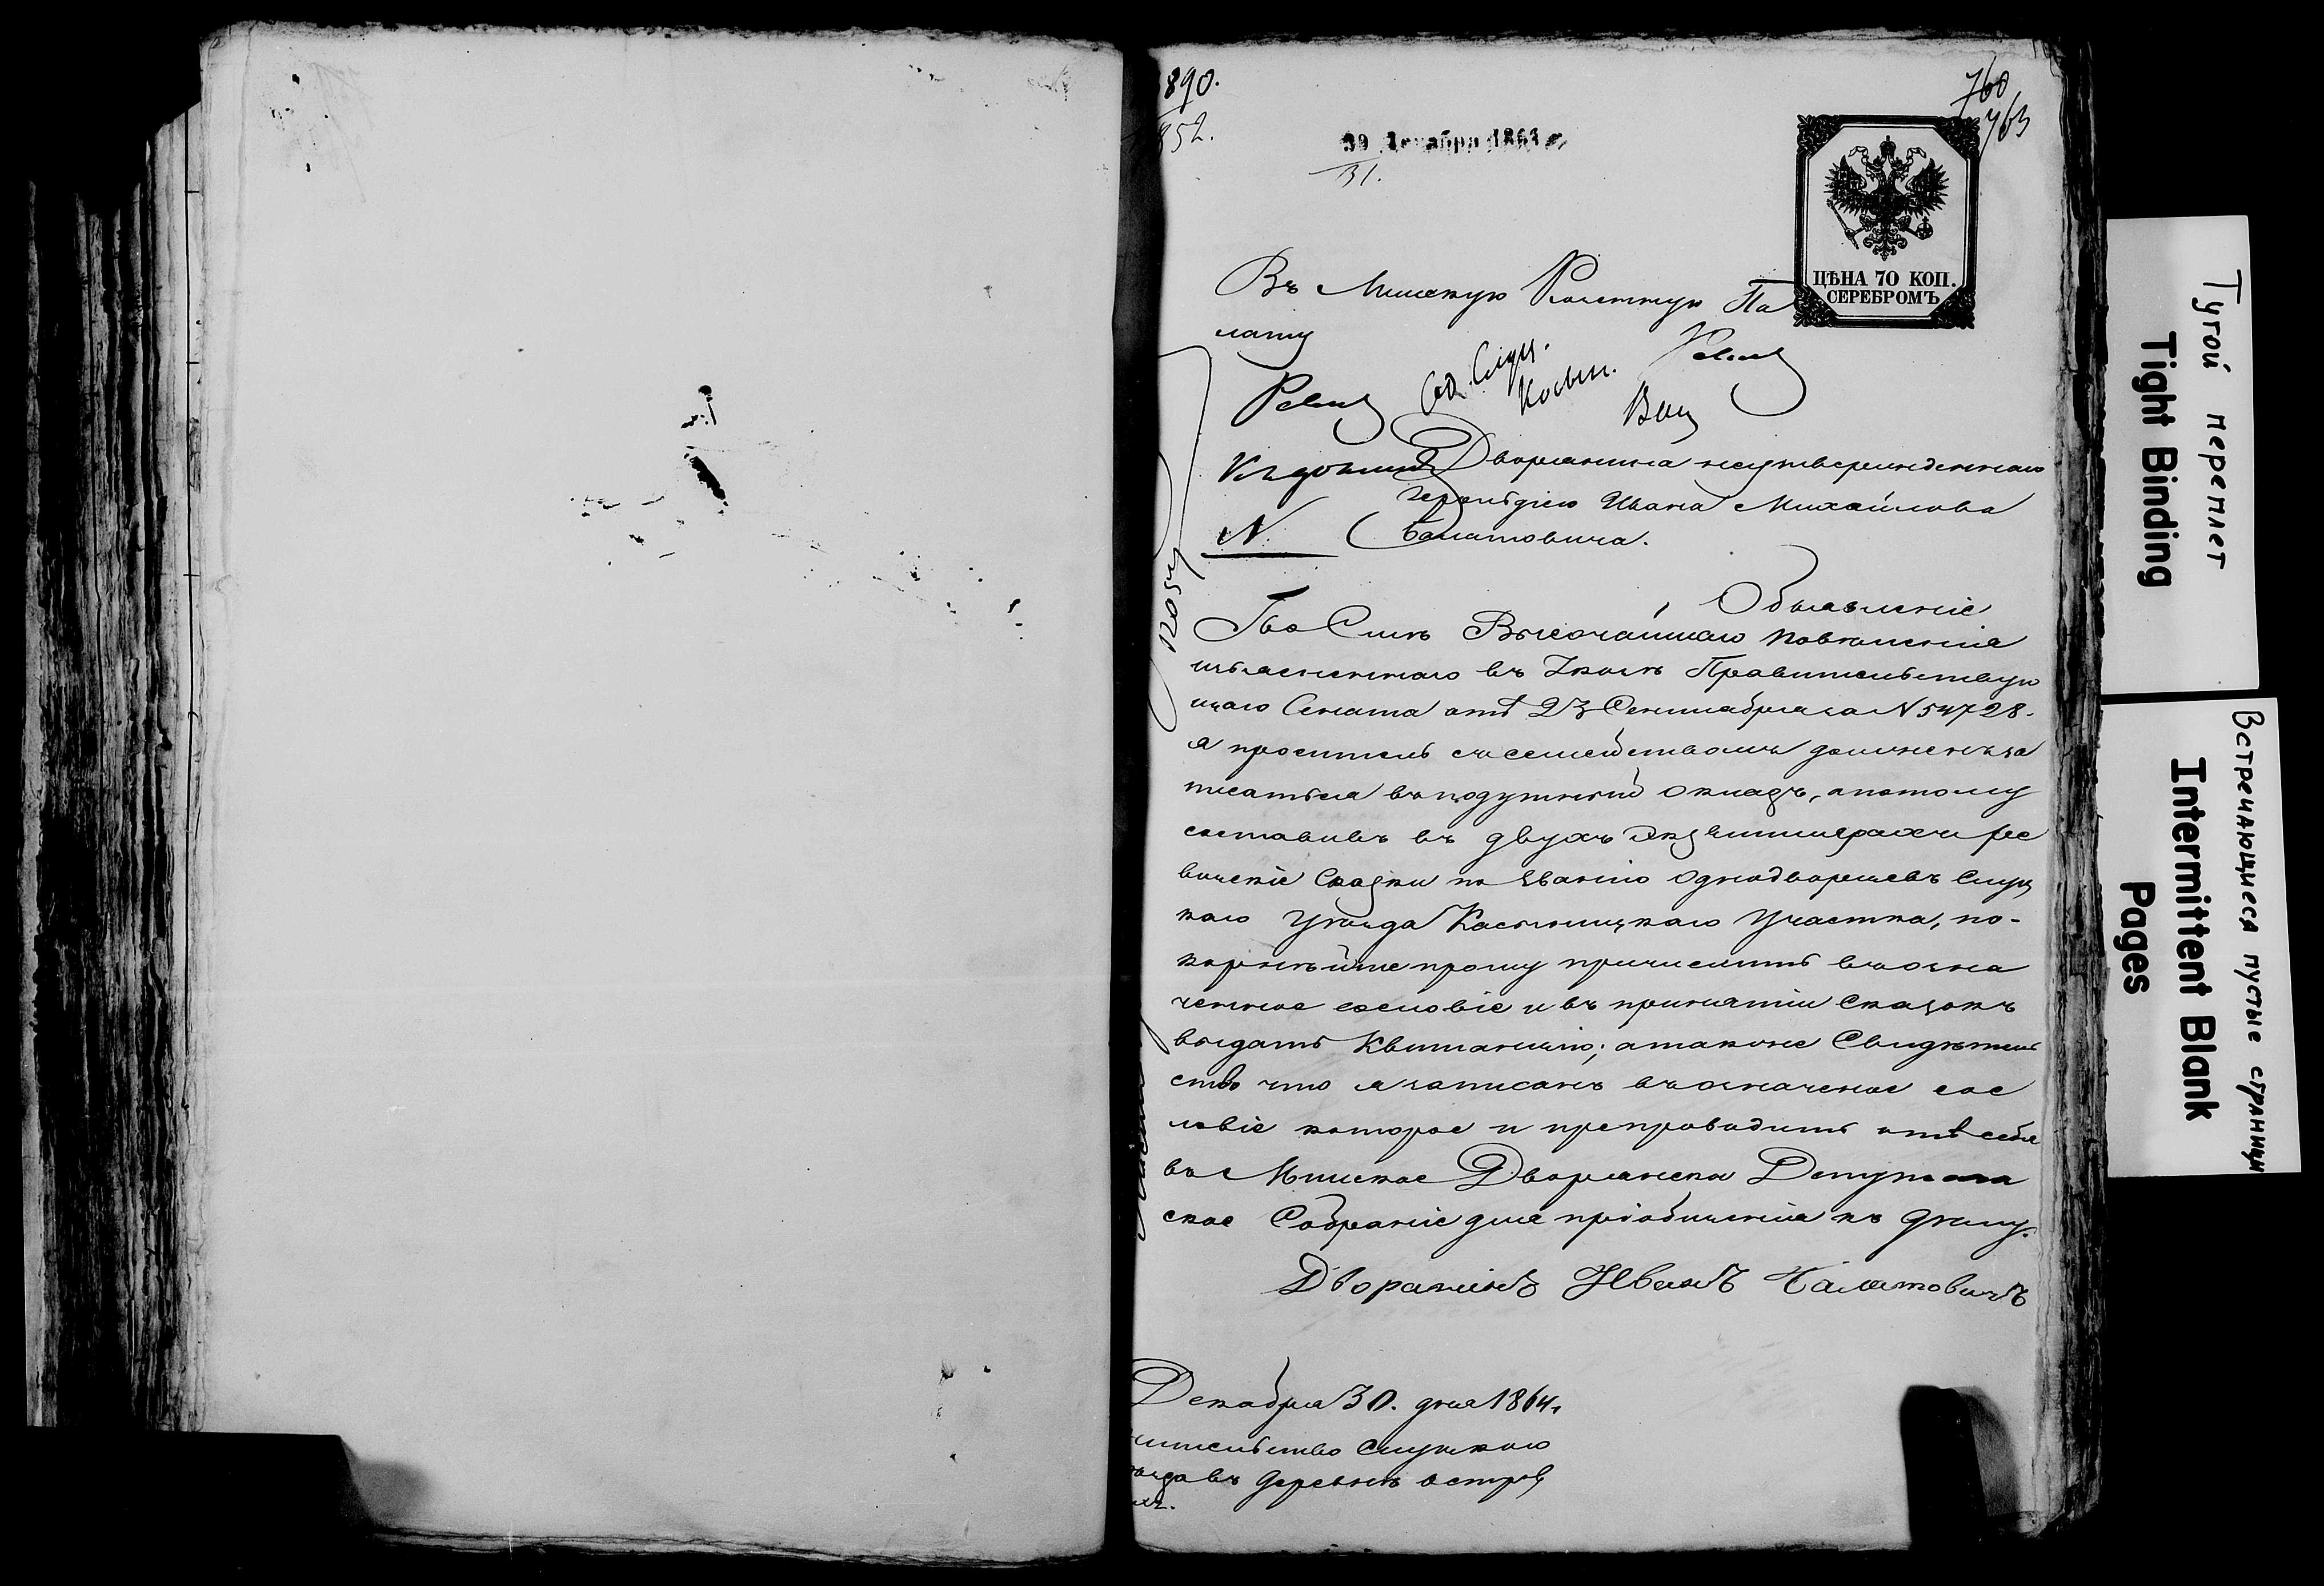 890.
852.
760
763
30 Декабря 1864 г.
31.
ЦѢНА 70 КОП.
СЕРЕБРОМЪ
Въ Минскую Казенную Па
лату
Ревиз
Од. Слуц.
Ревиз
Къ дѣлу
N
Дворянина неутвержденнаго
Герольдіею Ивана Михайлова
Балатовича.
Объявленіе
По Силѣ Высочайшаго повеленія
изъясненнаго въ Указѣ Правительствую
щаго Сената отъ 23 Сентября за N 54728.
я проситель съ семействомъ долженъ за
писаться въ подушный окладъ, а потому
составивъ въ двухъ Экземплярахъ ре
визскіе Сказки по званію Однодворцевъ Слуц
каго Уѣзда Участка, по-
корнѣйше прошу причислить въ озна
ченное сословіе и въ принятіи Сказокъ
выдать Квитанцію; а также Свидѣтель
ство что я записанъ въ означеное сос
ловіе которое и препроводить отъ себя
въ Минское Дворянское Депутат
ское Собраніе для пріобщенія къ дѣлу.
Дворянинъ Иванъ Балатовичъ
Декабря 30. дня 1864 г.
жительство Слуцкаго
уѣзда въ деревнѣ Остров
кахъ.
Тугой переплет
Tight Binding
Встречающиеся пустые страницы
Intermittent Blank
Pages